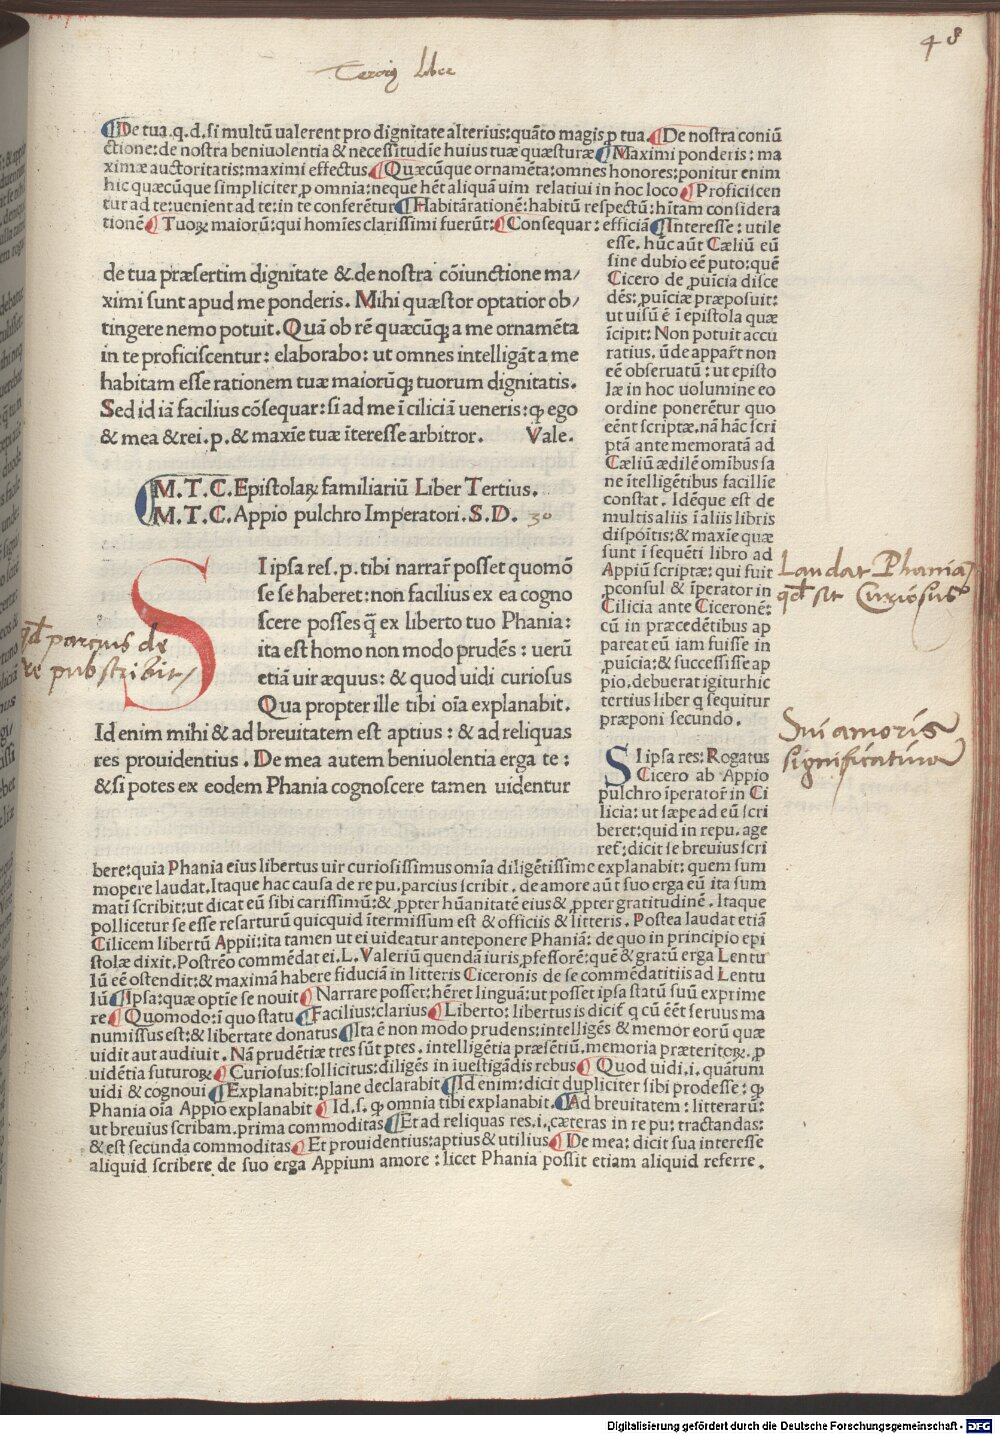 48
Liber
De tua.q.d.si multũ ualerent pro dignitate alterius:quãto magis ꝑ tua. De nostra coniũ
ctione:de nostra beniuolentia & necessitudĩe huius tuæ quæsturæ Maximi ponderis: ma
ximæ auctoritatis:maximi effectus. Quæcũque ornamẽta:omnes honores:ponitur enim
hic quæcũque simpliciter ꝓ omnia:neque hẽt aliquã uim relatiui in hoc loco Proficiscen
tur ad te:uenient ad te:in te conferẽtur Habitãrationẽ:habitũ respectũ:hĩtam considera
tionẽ Tuoꝝ maiorũ:qui homĩes clarissimi fuerũt: Consequar: efficiã Interesse: utile
esse. hũc aũt Cæliũ eũ
sine dubio eẽ puto:quẽ
Cicero de ꝓuicia disce
dẽs: ꝓuiciæ præposuit:
ut uisũ ẽ ĩ epistola quæ
ĩcipit: Non potuit accu
ratius. ũde apparꝭt non
eẽ obseruatũ: ut episto
læ in hoc uolumine eo
ordine ponerẽtur quo
eẽnt scriptæ.nã hãc scri
ptã ante memoratã ad
Cæliũ ædilẽ omĩbus sa
ne ĩtelligẽtibus facillĩe
constat. Idẽque est de
multis aliis ĩ aliis libris
dispoitis:& maxĩe quæ
sunt ĩ sequẽti libro ad
Appiũ scriptæ: qui fuit
ꝓconsul & ĩperator in
Cilicia ante Ciceronẽ:
cũ in præcedẽtibus ap
pareat eũ iam fuisse in
ꝓuicia:& successisse ap
pio.debuerat igitur hic
tertius liber q̃ sequitur
præponi secundo.
de tua præsertim dignitate & de nostra cõiunctione ma/
ximi sunt apud me ponderis. Mihi quæstor optatior ob/
tingere nemo potuit. Quã ob rẽ quæcũq; a me ornamẽta
in te proficiscentur: elaborabo: ut omnes intelligãt a me
habitam esse rationem tuæ maiorũq; tuorum dignitatis.
Sed id iã facilius cõsequar:si ad me ĩ ciliciã ueneris:ꝙ ego
& mea & rei.p.& maxĩe tuæ ĩteresse arbitror. Vale.
M.T.C.Epistolaꝝ familiariũ Liber Tertius.
M.T.C.Appio pulchro Imperatori.S.D. 30
SI ipsa res.p.tibi narrar̃ posset quomõ
se se haberet:non facilius ex ea cogno
scere posses q̃ ex liberto tuo Phania:
ita est homo non modo prudẽs: uerũ
etiã uir æquus: & quod uidi curiosus
Qua propter ille tibi oĩa explanabit.
Id enim mihi & ad breuitatem est aptius: & ad reliquas
res prouidentius. De mea autem beniuolentia erga te:
& si potes ex eodem Phania cognoscere tamen uidentur
Laudat Phaniã
qđ sit Curiosus
qđ parcius de
re pub scribit/
Sui amoris
significatiua
SI ipsa res: Rogatus
Cicero ab Appio
pulchro ĩperator̃ in Ci
licia: ut sæpe ad eũ scri
beret:quid in repu. age
ret:dicit se breuius scri
bere:quia Phania eius libertus uir curiosissimus omĩa diligẽtissime explanabit: quem sum
mopere laudat.Itaque hac causa de re pu.parcius scribit. de amore aũt suo erga eũ ita sum
matĩ scribit:ut dicat eũ sibi carissimũ:& ꝓpter hũanitatẽ eius & ꝓpter gratitudinẽ. Itaque
pollicetur se esse resarturũ quicquid ĩtermissum est & officiis & litteris. Postea laudat etiã
Cilicem libertũ Appii:ita tamen ut ei uideatur anteponere Phaniã: de quo in principio epi
stolæ dixit.Postrẽo commẽdat ei.L.Valeriũ quendã iuris ꝓfessorẽ:quẽ & gratũ erga Lentu
lũ eẽ ostendit:& maximã habere fiduciã in litteris Ciceronis de se commẽdatitiis ad Lentu
lũ Ipsa:quæ optĩe se nouit Narrare posset:hẽret linguã:ut posset ipsa statũ suũ exprime
re Quomodo:ĩ quo statu Facilius:clarius Liberto: libertus is dicit̃ q cũ eẽt seruus ma
numissus est:& libertate donatus Ita ẽ non modo prudens:intelligẽs & memor eorũ quæ
uidit aut audiuit. Nã prudẽtiæ tres sũt ptes. intelligẽtia præsẽtiũ.memoria præteritoꝝ.ꝓ
uidẽtia futuroꝝ Curiosus:sollicitus:diligẽs in iuestigãdis rebus Quod uidi.i.quãtum
uidi & cognoui Explanabit:plane declarabit Id enim:dicit dupliciter sibi prodesse: ꝙ
Phania oĩa Appio explanabit Id.s. ꝙ omnia tibi explanabit. Ad breuitatem: litterarũ:
ut breuius scribam.prima commoditas Et ad reliquas res.i.cæteras in re pu: tractandas:
& est secunda commoditas Et prouidentius:aptius & utilius De mea: dicit sua interesse
aliquid scribere de suo erga Appium amore: licet Phania possit etiam aliquid referre.
Digitalisierung gefördert durch die Deutsche Forschungsgemeinschaft - DFG